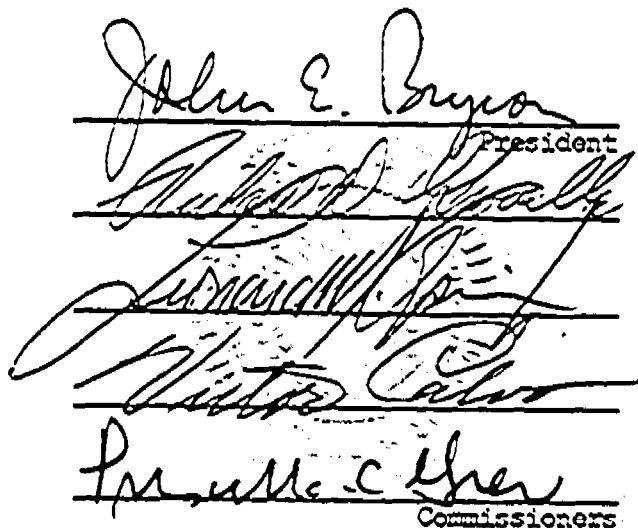 John E. Bryson
President
Richard D. Gravelle
Leonard M. Grimes
Victor Calvo
Priscilla C. Grew
Commissioners